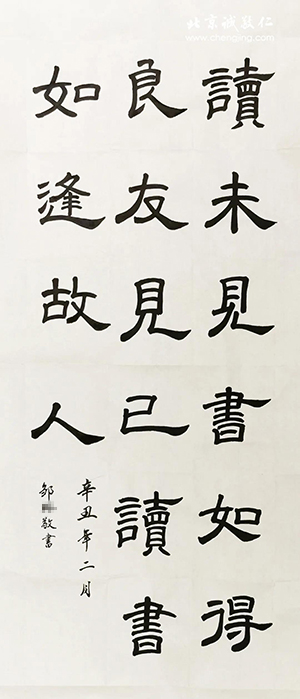 北京誠敬仁
www.chengjing.com
讀未見書如得
良友見已讀書
如逢故人
辛丑年二月
邹 敬書